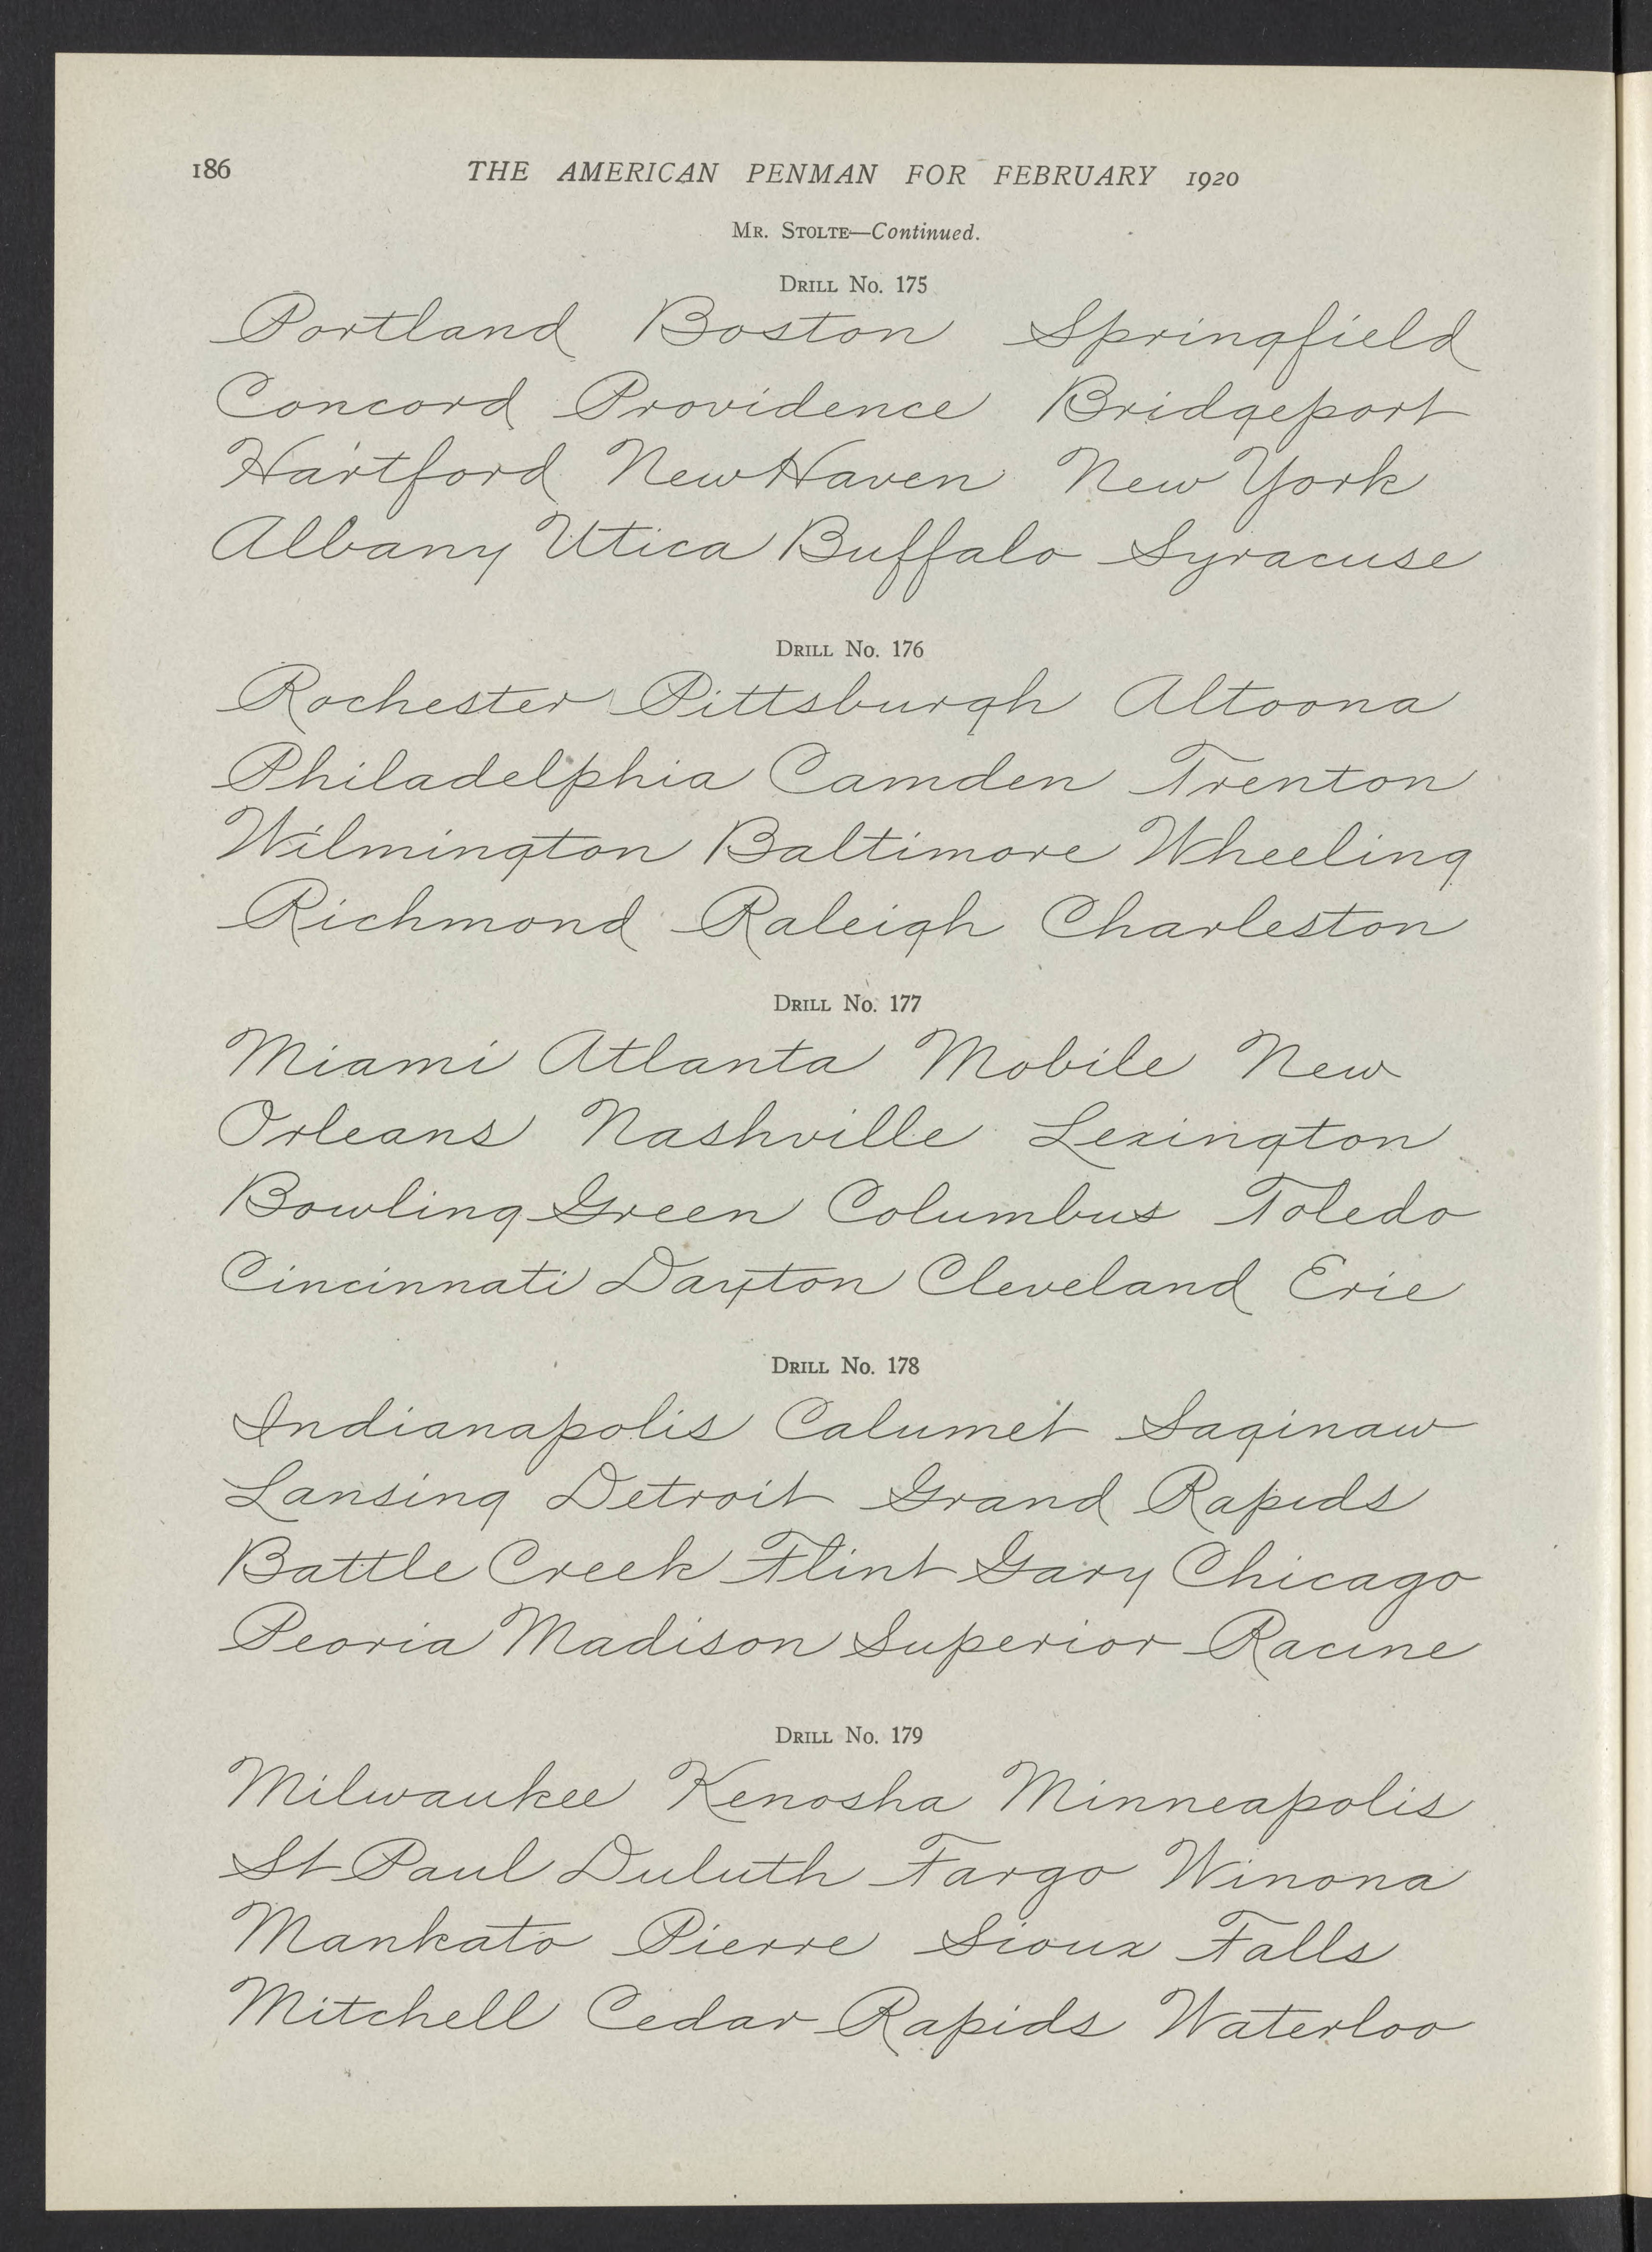 186 THE AMERICAN PENMAN FOR FEBRUARY 1920
Mr. Stolte—Continued.
Drill No. 175
Portland Boston Springfield
Concord Providence Bridgeport
Hartford New Haven New York
Albany Utica Buffalo Syracuse
Drill No. 176
Rochester Pittsburgh Altoona
Philadelphia Camden Trenton
Wilmington Baltimore Wheeling
Richmond Raleigh Charleston
Drill No. 177
Miami Atlanta Mobile New
Orleans Nashville Lexington
Bowling Green Columbus Toledo
Cincinnati Dayton Cleveland Erie
Drill No. 178
Indianapolis Calumet Saginaw
Lansing Detroit Grand Rapids
Battle Creek Flint Gary Chicago
Peoria Madison Superior Racine
Drill No. 179
Milwaukee Kenosha Minneapolis
St Paul Duluth Fargo Winona
Mankato Pierre Sioux Falls
Mitchell Cedar Rapids Waterloo